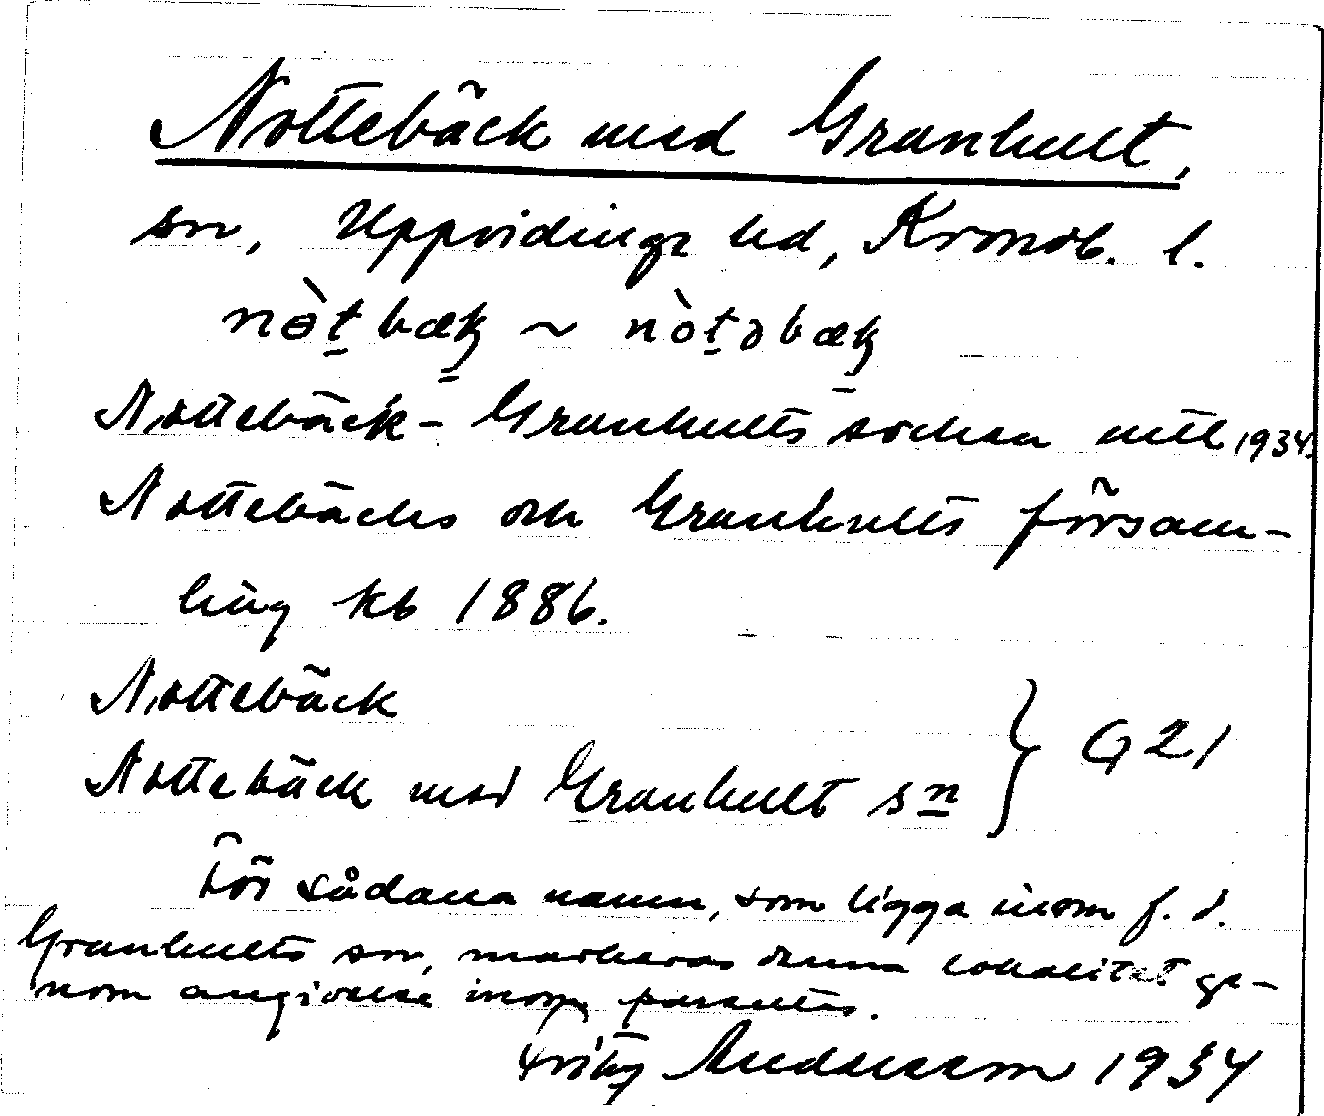 Nottebäck med Granhult,
sn, Uppvidinge hd, Kronob. l.
nòt̲bæk̲ ~ nòt̲əbæk̲
Nottebäck-Granhults socken uttl 1934.
Nottebäcks och Granhults försam-
ling kb 1886.
Nottebäck
Nottebäck med Granhult sn } G 21
För sådana namn, som ligga inom f. d.
Granhults sn, markeras denna lokalitet ge-
nom angivelse inom parentes.
Fritz Andersson 1934